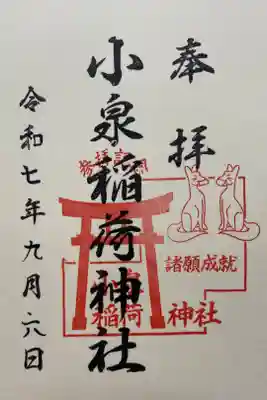 奉拝
小泉稲荷神社
令和七年九月六日
諸願成就
稲荷神社